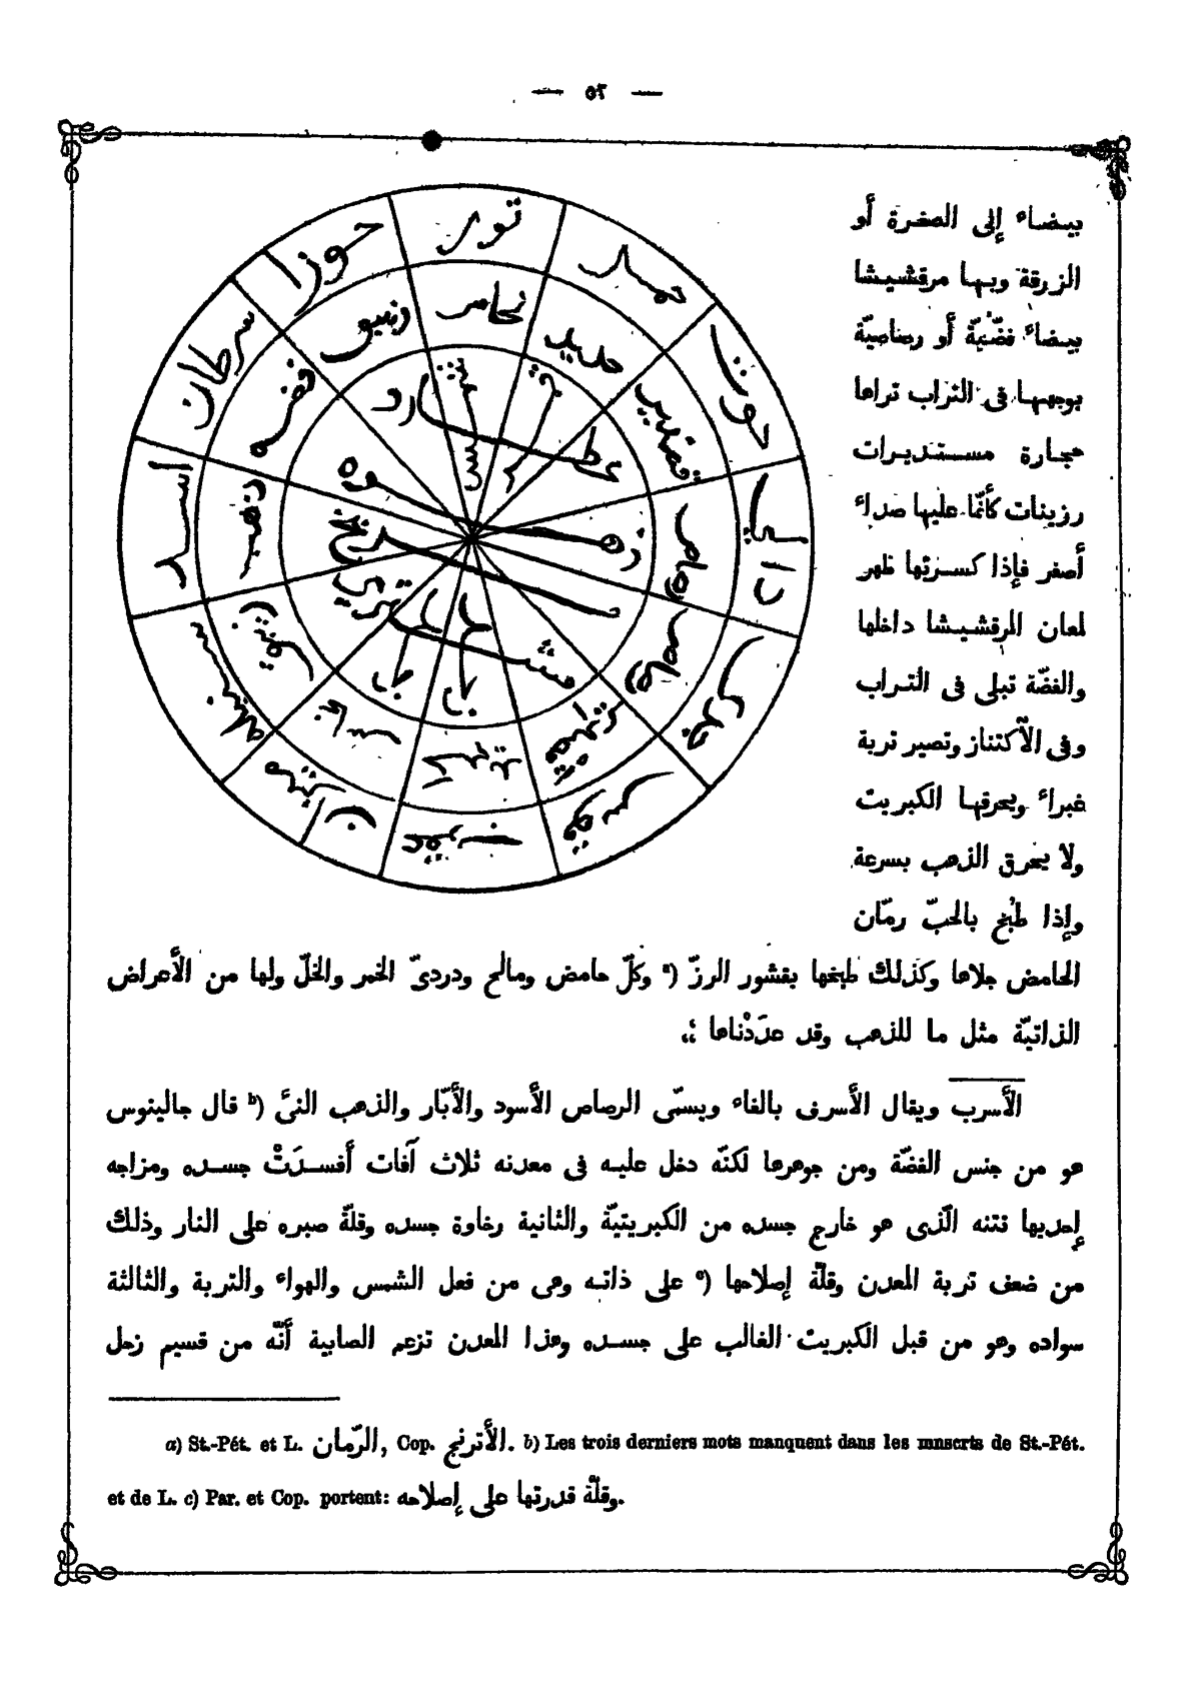 — ٥٢ —
بيضاء إلى الصفرة أو
الزرقة وبها مرقشيشا
بيضاء فضّيّة أو رصاصيّة
بوجهها فى التراب تراها
حجارة مستديرات
رزينات كأنّما عليها صداء
أصفر فإذا كسرتها ظهر
لمعان المرقشيشا داخلها
والفضّة تبلى فى التراب
وفى الآكتناز وتصير تربة
غبراء ويحرقها الكبريت
ولا يحرق الذهب بسرعة
وإذا طبخ بالحبّ رمّان
الحامض جلاها وكذلك طبخها بقشور الرزّ (a وكلّ حامض ومالح ودردىّ الخمر والخلّ ولها من الأعراض
الذاتيّة مثل ما للذهب وقد عدَدْناها ؛،
الأسرب ويقال الأسرف بالفاء ويسمّى الرصاص الأسود والأبّار والذهب النىَّ (b قال جالينوس
هو من جنس الفضّة ومن جوهرها لكنّه دخل عليه فى معدنه ثلاث آفات أفسدَتْ جسده ومزاجه
إحديها نتنه الّذى هو خارج جسده من الكبريتيّة والثانية رخاوة جسده وقلّة صبره على النار وذلك
من ضعف تربة المعدن وقلّة إصلاحها (c على ذاته وهى من فعل الشمس والهواء والتربة والثالثة
سواده وهو من قبل الكبريت الغالب على جسده وهذا المعدن تزعم الصابية أنّه من قسيم زحل
حمل
ثور
جوزا
سرطان
اسد
سنبله
ميزان
عقرب
قوس
جدى
دالى
حوت
حديد
نحاس
زيبق
فضه
ذهب
رصاص
رصاص
قصدير
عطارد
شمس
قمر
زهره
مريخ
مشترى
a) St.-Pét. et L. الرّمان, Cop. الأترنج. b) Les trois derniers mots manquent dans les mnscrts de St.-Pét.
et de L. c) Par. et Cop. portent: وقلّة قدرتها على إصلاحه.